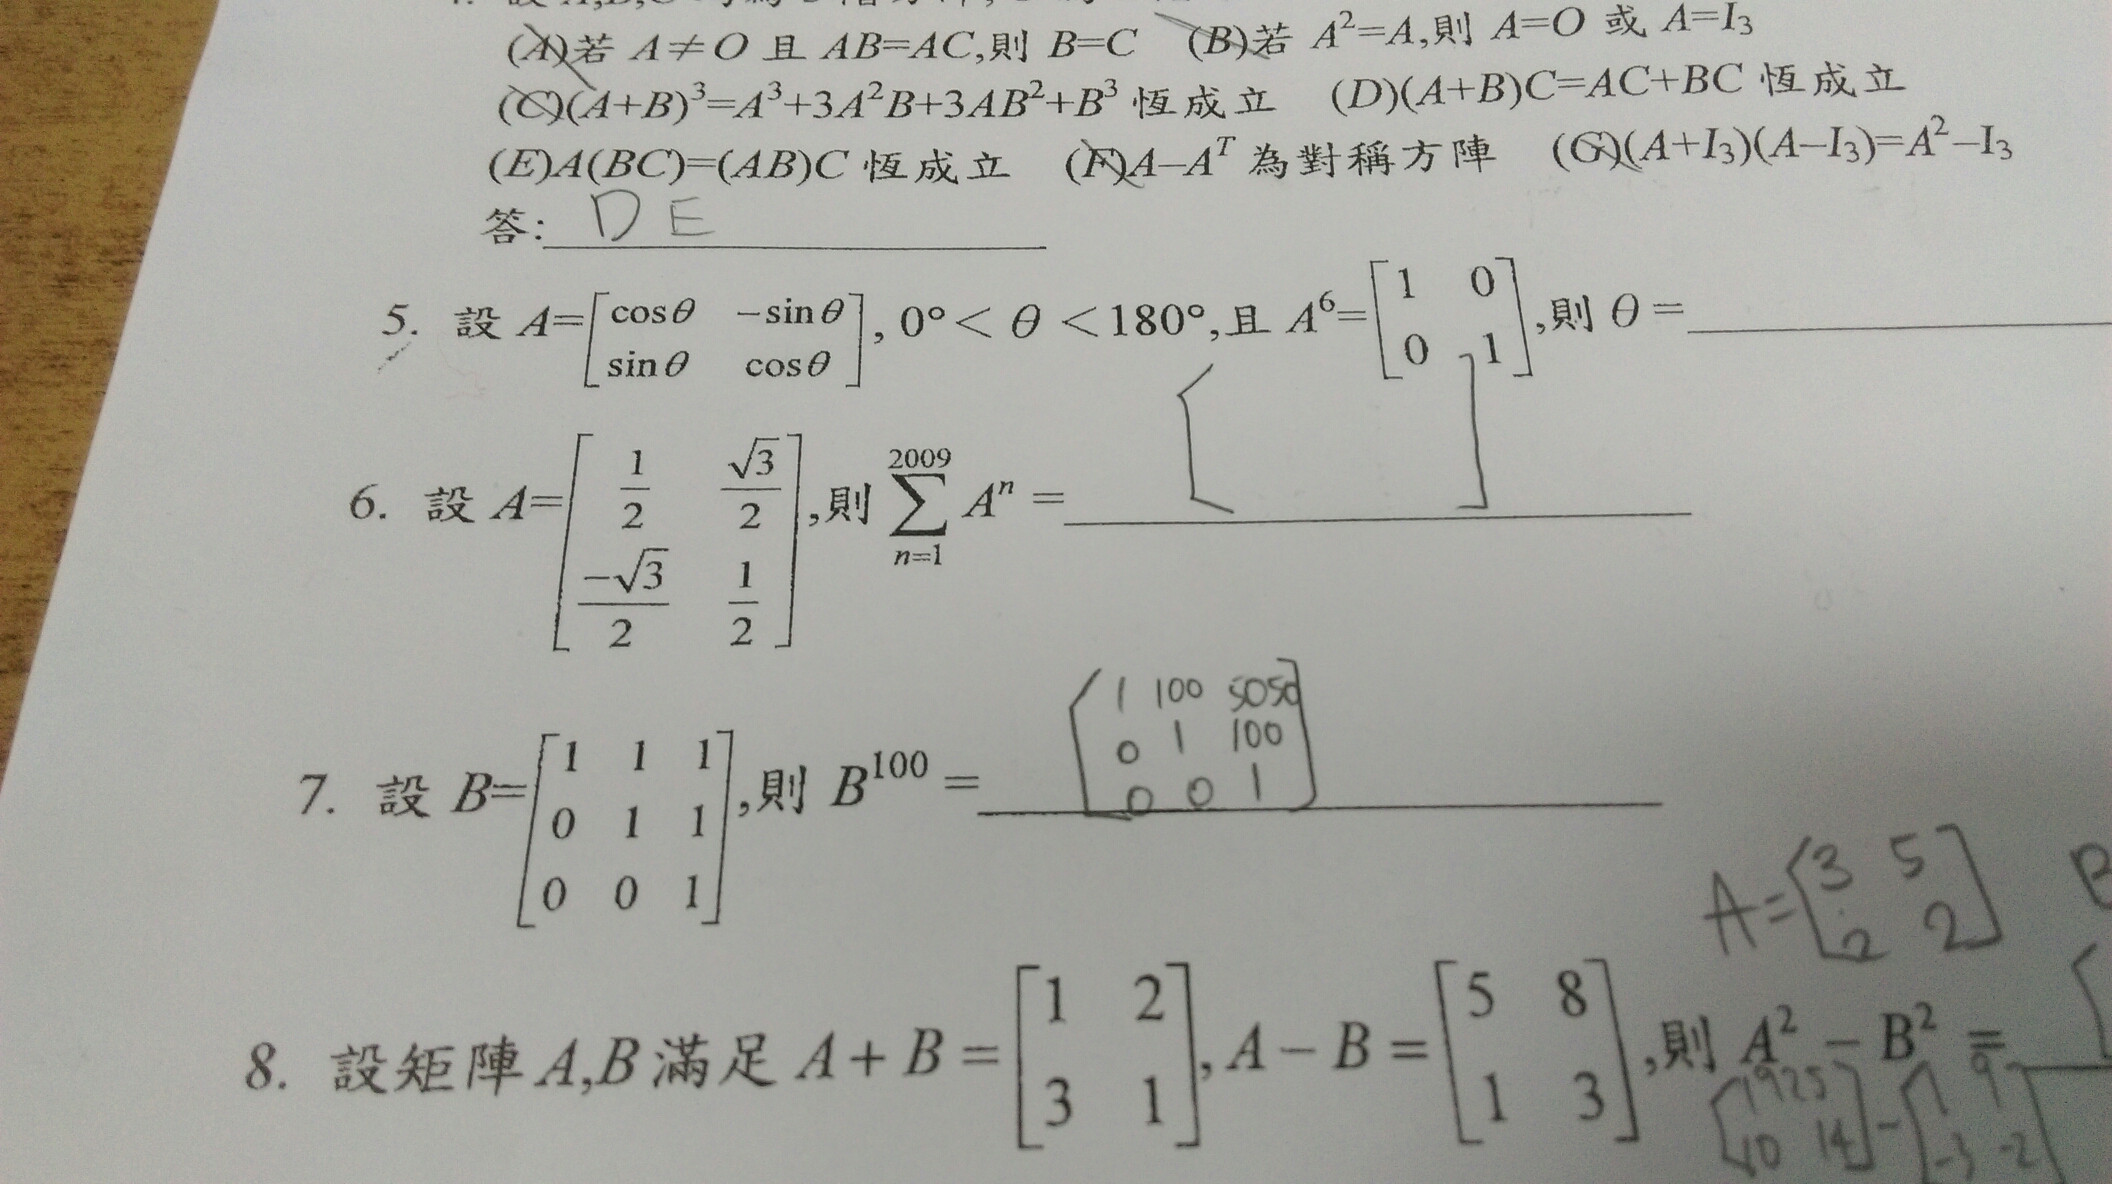 (A)若 A≠O 且 AB=AC,則 B=C (B)若 A²=A,則 A=O 或 A=I₃
(C)(A+B)³=A³+3A²B+3AB²+B³ 恆成立 (D)(A+B)C=AC+BC 恆成立
(E)A(BC)=(AB)C 恆成立 (F)A−Aᵀ 為對稱方陣 (G)(A+I₃)(A−I₃)=A²−I₃
答: D E
5. 設 A=[cosθ −sinθ; sinθ cosθ], 0°< θ <180°,且 A⁶=[1 0; 0 1],則 θ =
6. 設 A=[1/2 √3/2; −√3/2 1/2],則 ∑_{n=1}^{2009} Aⁿ = [ ]
7. 設 B=[1 1 1; 0 1 1; 0 0 1],則 B¹⁰⁰ = [1 100 5050; 0 1 100; 0 0 1]
A=[3 5; 2 2] B
8. 設矩陣 A,B 滿足 A+B=[1 2; 3 1], A−B=[5 8; 1 3],則 A²−B²= [
[19 25; 10 14]−[1 9; -3 -2]